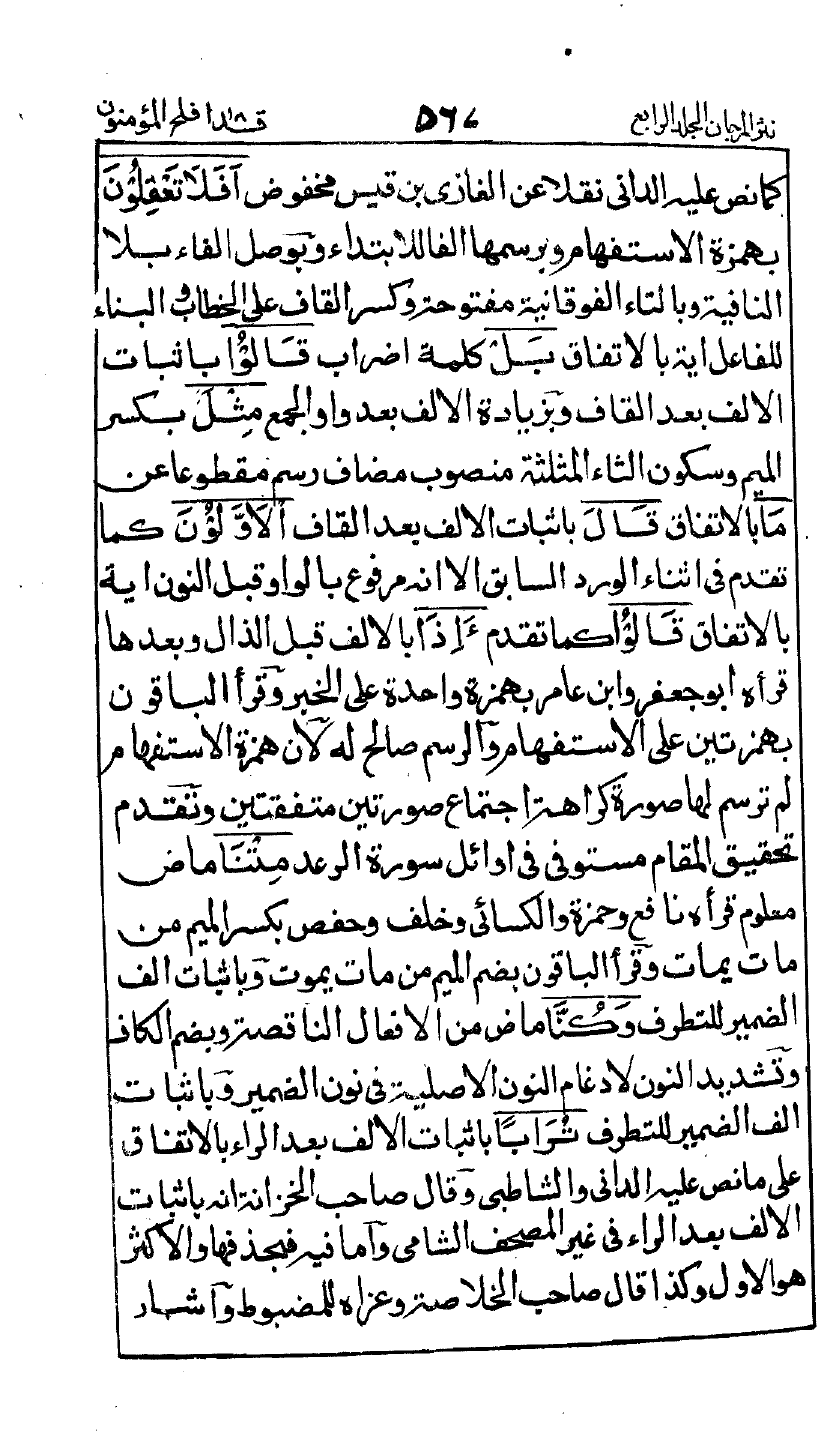 نثر المرجان المجلد الرابع ٥٦٧ قد افلح المؤمنون
كما نص عليه الدانى نقلا عن الغازى بن قيس مخفوض اَفَلَا تَعْقِلُوْنَ
بهمزة الاستفهام وبرسمها الفا للابتداء وبوصل الفاء بلا
النافية وبالتاء الفوقانية مفتوحة وكسر القاف على الخطاب والبناء
للفاعل اية بالاتفاق بَلْ كلمة اضراب قَالُوْا باثبات
الالف بعد القاف وبزيادة الالف بعد واو الجمع مِثْلَ بكسر
الميم وسكون الثاء المثلثة منصوب مضاف رسم مقطوعا عن
مَا بالاتفاق قَالَ باثبات الالف بعد القاف اَلْاَوَّلُوْنَ كما
تقدم فى اثناء الورد السابق الا انه مرفوع بالواو قبل النون اية
بالاتفاق قَالُوْا كما تقدم ءَاِذَا بالالف قبل الذال وبعدها
قرأه ابو جعفر وابن عامر بهمزة واحدة على الخبر وقرأ الباقون
بهمزتين على الاستفهام والرسم صالح له لان همزة الاستفهام
لم ترسم لها صورة كراهة اجتماع صورتين متفقتين وتقدم
تحقيق المقام مستوفى فى اوائل سورة الرعد مِتْنَا ماض
معلوم قرأه نافع وحمزة والكسائى وخلف وحفص بكسر الميم من
مات يمات وقرأ الباقون بضم الميم من مات يموت وباثبات الف
الضمير للتطرف وَكُنَّا ماض من الافعال الناقصة وبضم الكاف
وتشديد النون لادغام النون الاصلية فى نون الضمير وباثبات
الف الضمير للتطرف تُرَابًا باثبات الالف بعد الراء بالاتفاق
على ما نص عليه الدانى والشاطبى وقال صاحب الخزانة انه باثبات
الالف بعد الراء فى غير المصحف الشامى واما فيه فبحذفها والاكثر
هو الاول وكذا قال صاحب الخلاصة وعزاه للمضبوط واشار